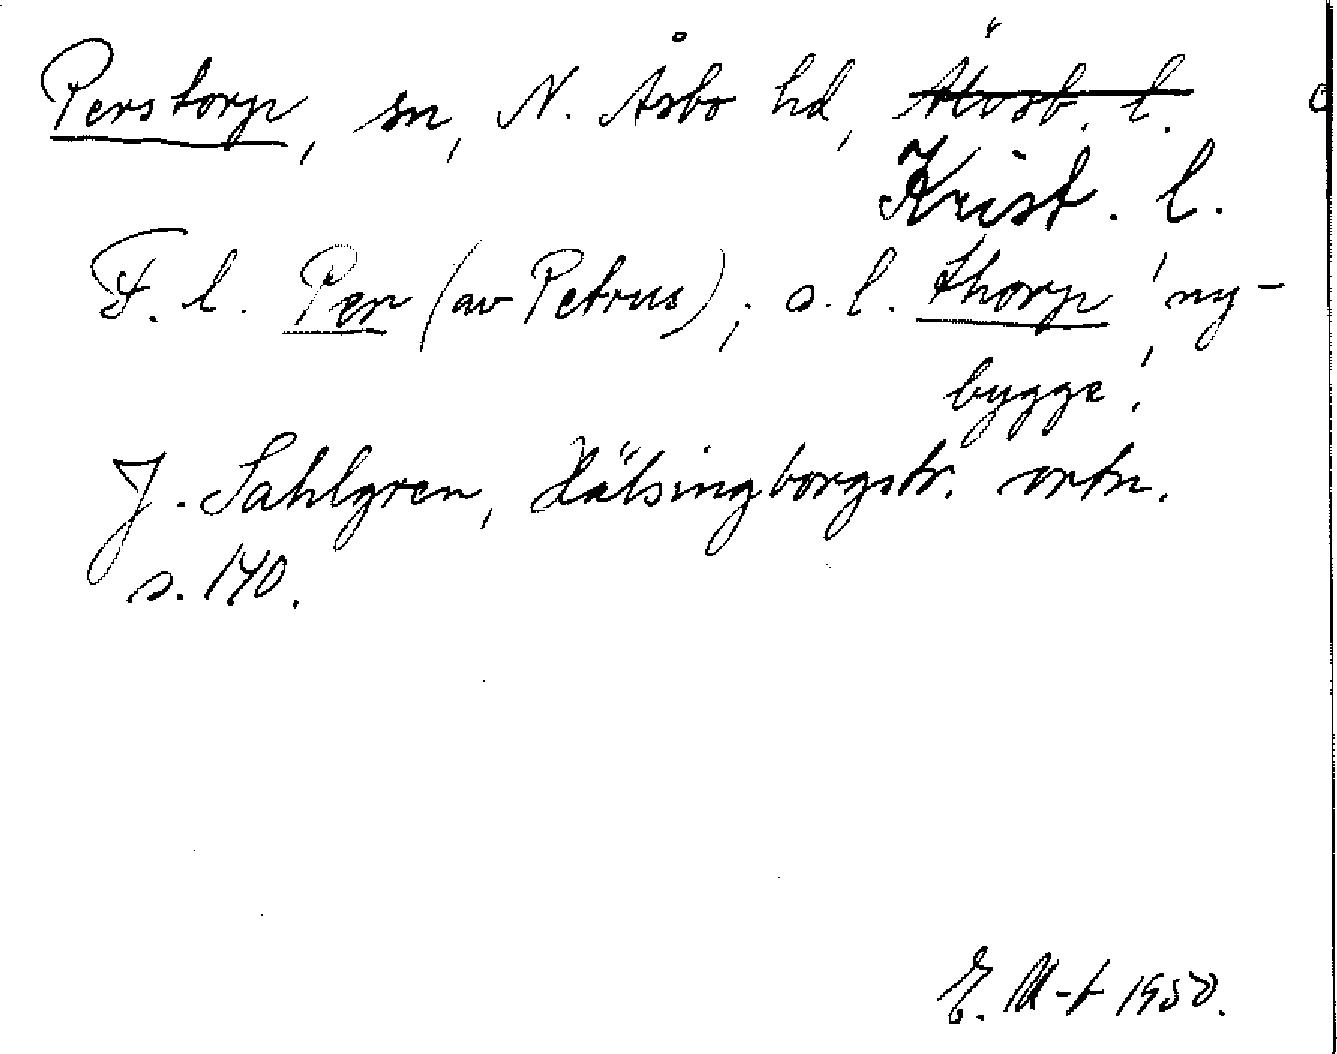 Perstorp, sn, N. Åsbo hd, Älvsb. l.
Krist. l.
F. l. Per (av Petrus); s. l. thorp 'ny-
bygge'.
J. Sahlgren, Hälsingborgstr. ortn.
s. 170.
E. M-t 1950.